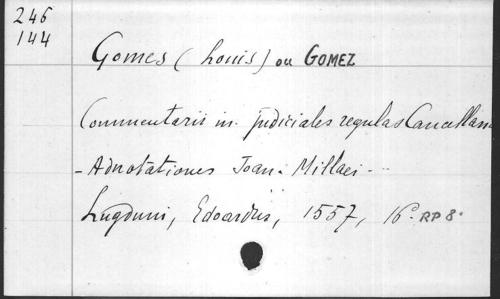 246
144
Gomes (Louis) ou GOMEZ
Commentarii in judiciales regulas Cancellari
- Adnotationes Joan. Millaei ..
Lugduni, Edoardus, 1557, 16° RP 8°